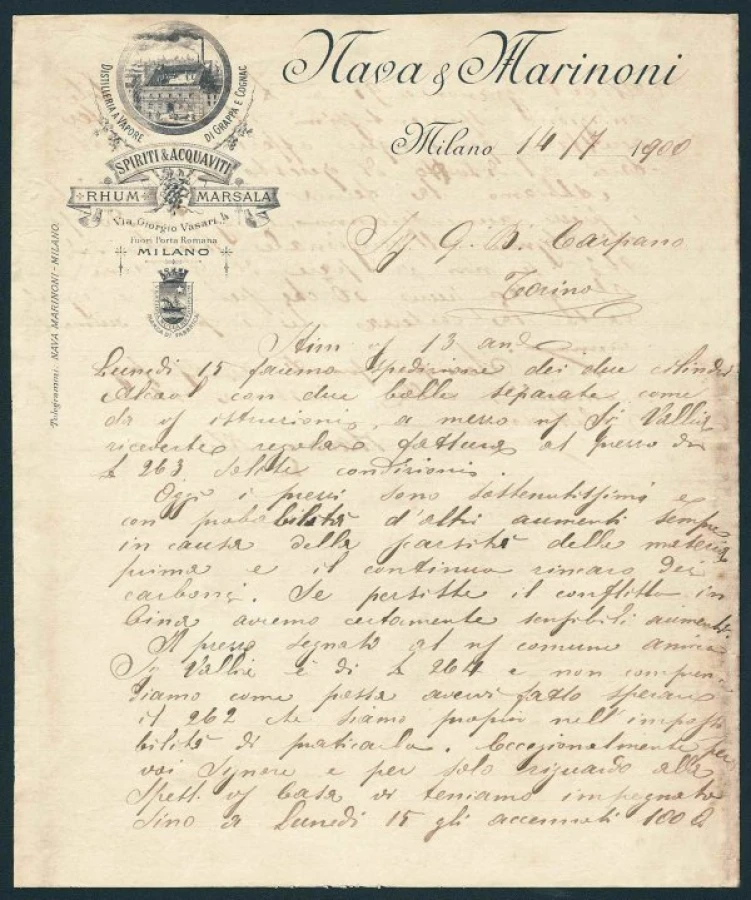 Nava & Marinoni
DISTILLERIA A VAPORE DI GRAPPA E COGNAC
SPIRITI & ACQUAVITI
RHUM MARSALA
Via Giorgio Vasari, 4
Fuori Porta Romana
MILANO
MARCA DI FABBRICA
Telegrammi: NAVA MARINONI - MILANO
Milano 14/7 1900
Sig G. B. Carpano
Torino
13 and
Lunedi 15 faremo spedizione dei due cilindri
Alcool con due bolle separate come
da vs istruzioni, a mezzo ns Sr Vallié
riceverete regolare fattura al prezzo di
£ 263 solite condizioni.
Oggi i prezzi sono sostenutissimi e
con probabilità d'altri aumenti sempre
in causa della scarsità delle materia
prima e il continuo rincaro dei
carboni. Se persiste il conflitto in
Cina avremo certamente sensibili aumenti.
Il prezzo segnato al ns comune amico
Sr Vallié è di £ 264 e non compren-
diamo come possa avervi fatto sperare
il 262 che siamo proprio nell'imposti
bilità di praticarlo. Eccezionalmente per
voi Signore e per solo riguardo alla
Spett. vs Casa vi teniamo impegnato
sino a Lunedi 15 gli accennati 100 Q